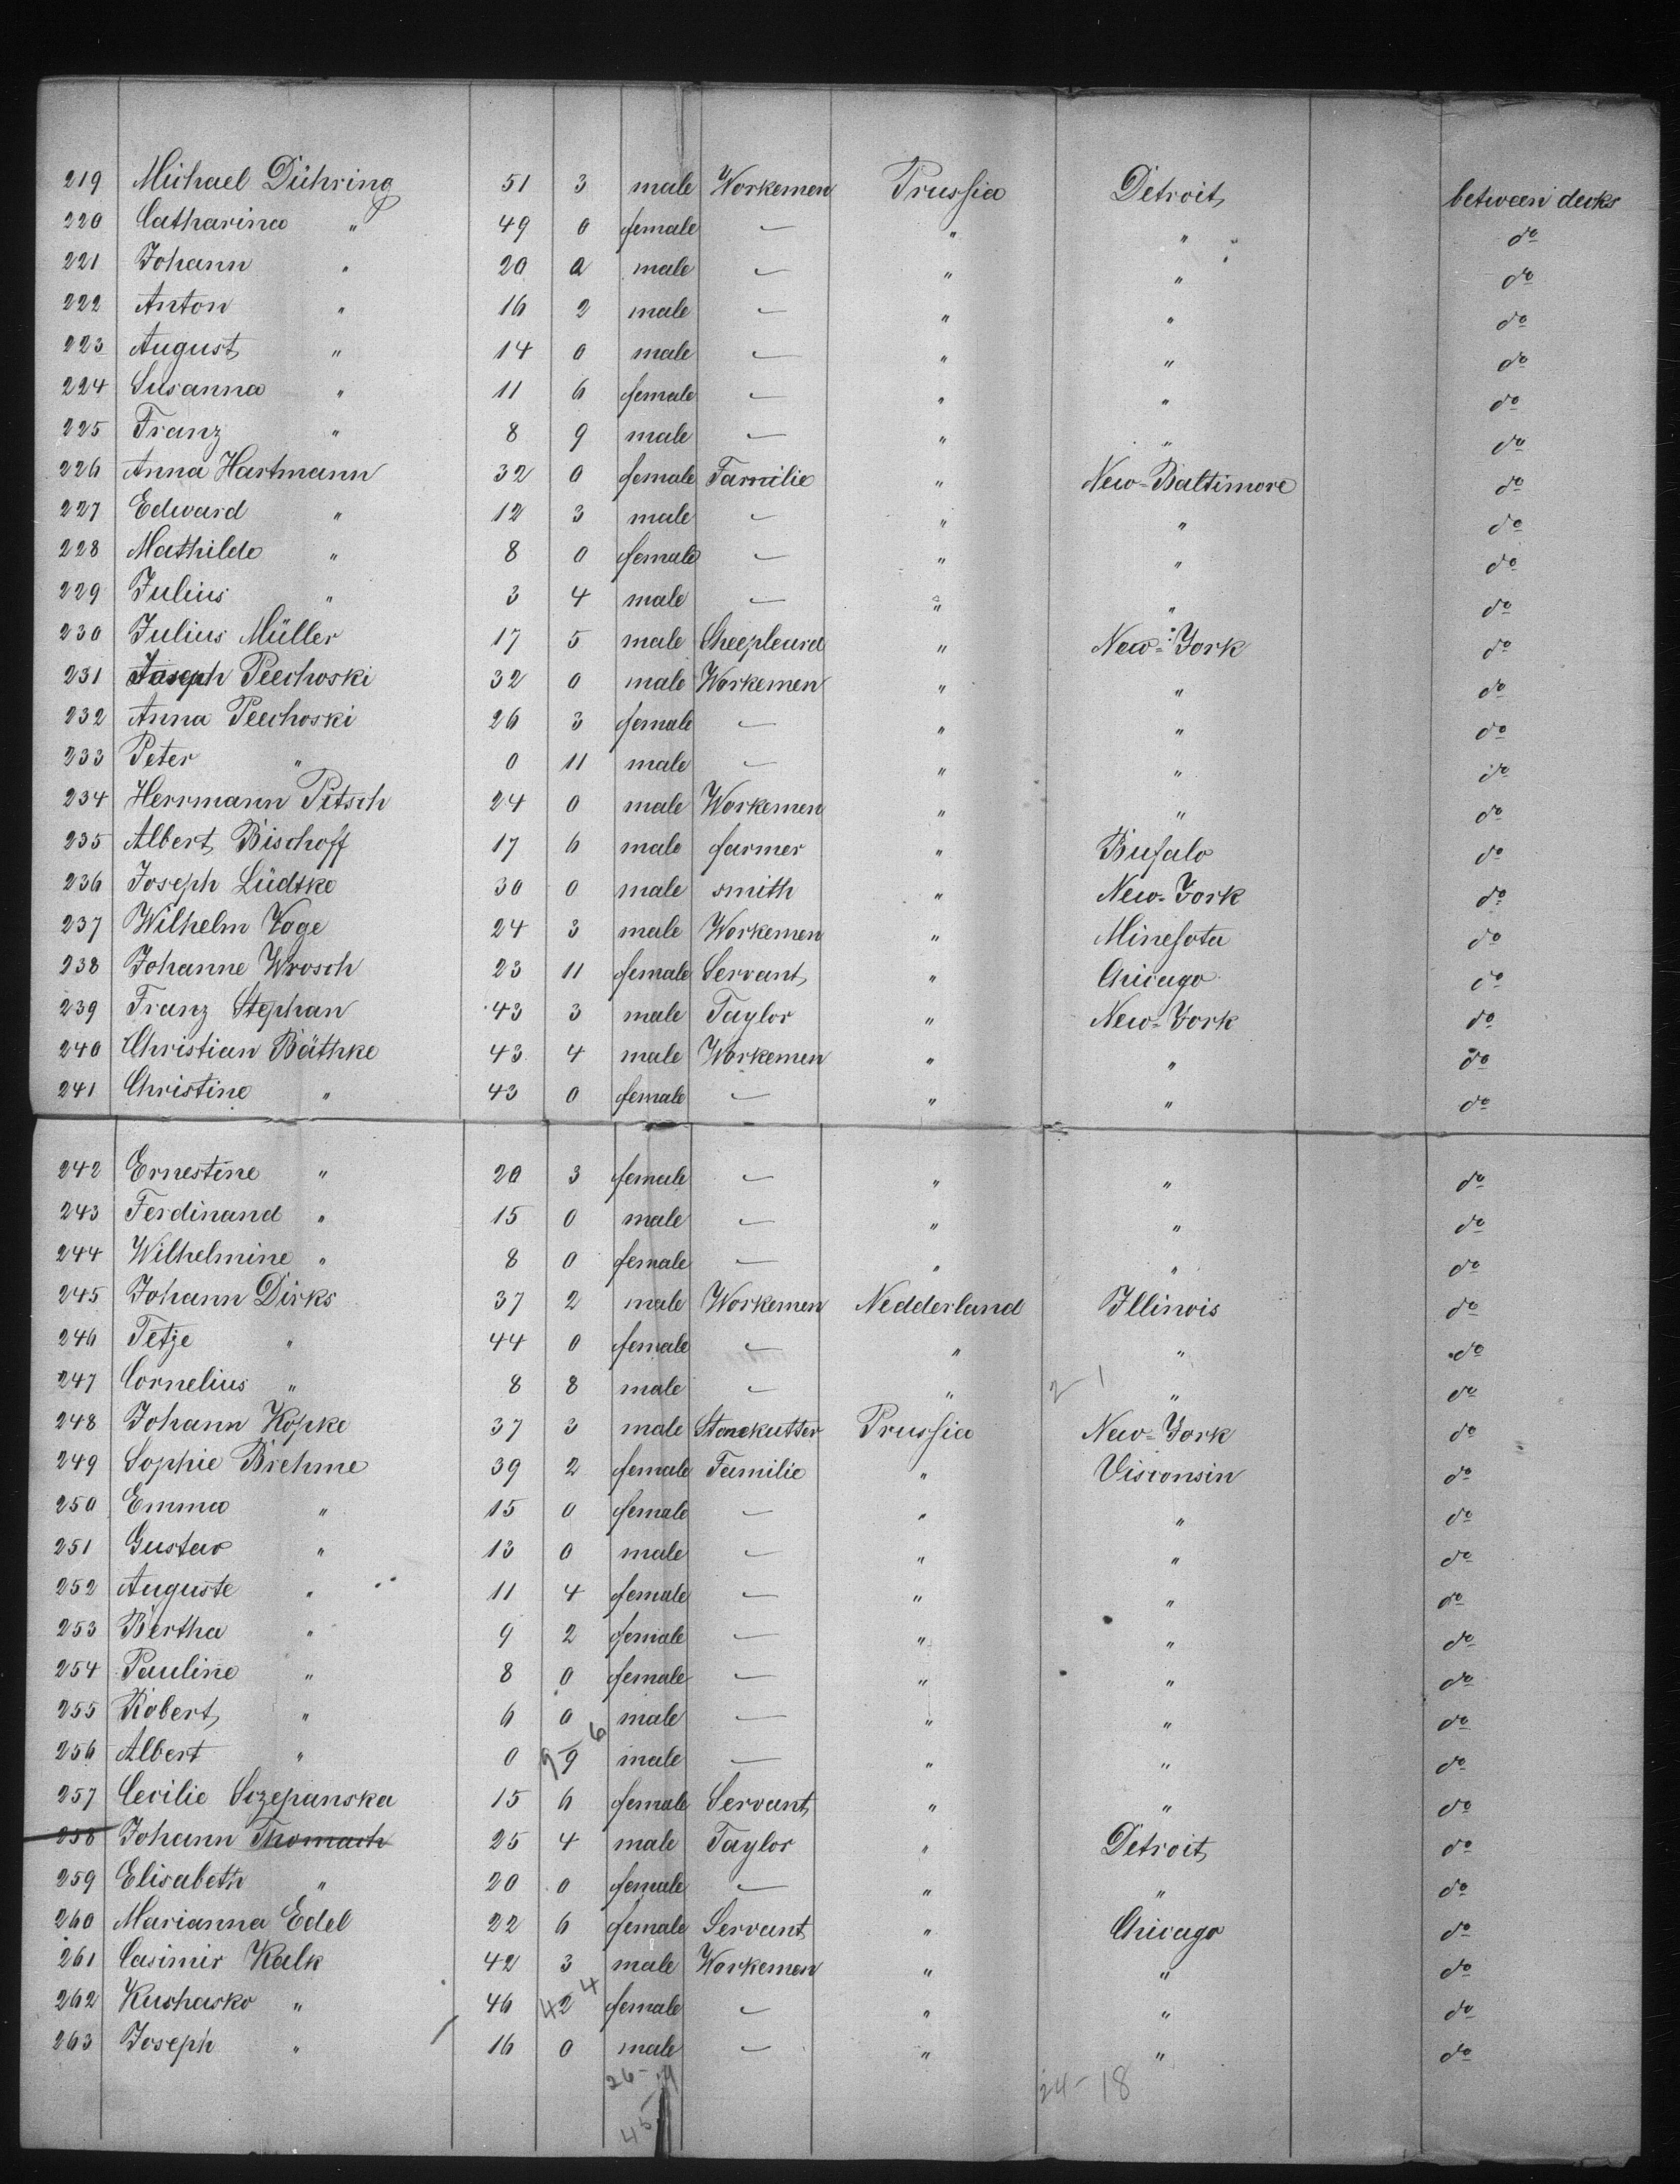 219 Michael Dühring 51 3 male Workemen Prussia Detroit between decks
220 Catharina " 49 0 female — " " do
221 Johann " 20 0 male — " " do
222 Anton " 16 2 male — " " do
223 August " 14 0 male — " " do
224 Susanna " 11 6 female — " " do
225 Franz " 8 9 male — " " do
226 Anna Hartmann 32 0 female Familie " New-Baltimore do
227 Edward " 12 3 male — " " do
228 Mathilde " 8 0 female — " " do
229 Julius " 3 4 male — " " do
230 Julius Müller 17 5 male Sheepleard " New-York do
231 Joseph Peechoski 32 0 male Workemen " " do
232 Anna Peechoski 26 3 female — " " do
233 Peter " 0 11 male — " " do
234 Herrmann Pitsch 24 0 male Workemen " " do
235 Albert Bischoff 17 6 male farmer " Bufalo do
236 Joseph Lüdtke 30 0 male smith " New-York do
237 Wilhelm Voge 24 3 male Workemen " Minesota do
238 Johanne Wrosch 23 11 female Servant " Chicago do
239 Franz Stephan 43 3 male Taylor " New-York do
240 Christian Bäthke 43 4 male Workemen " " do
241 Christine " 43 0 female — " " do
242 Ernestine " 20 3 female — " " do
243 Ferdinand " 15 0 male — " " do
244 Wilhelmine " 8 0 female — " " do
245 Johann Dirks 37 2 male Workemen Nedderland Illinois do
246 Tetje " 44 0 female — " " do
247 Cornelius " 8 8 male — " 2 1 " do
248 Johann Kopke 37 3 male Stonekutter Prussia New-York do
249 Sophie Brehme 39 2 female Familie " Visconsin do
250 Emma " 15 0 female — " " do
251 Gustav " 13 0 male — " " do
252 Auguste " 11 4 female — " " do
253 Bertha " 9 2 female — " " do
254 Pauline " 8 0 female — " " do
255 Robert " 6 0 male — " " do
256 Albert " 0 9 9 6 male — " " do
257 Cecilie Sczepanska 15 6 female Servant " " do
258 Johann Thomach 25 4 male Taylor " Detroit do
259 Elisabeth " 20 0 female — " " do
260 Marianna Edel 22 6 female Servant " Chicago do
261 Casimir Kalk 42 3 male Workemen " " do
262 Kushasko " 46 2 42 4 female — " " do
263 Joseph " 16 0 male — " " do
26- 24-18
45